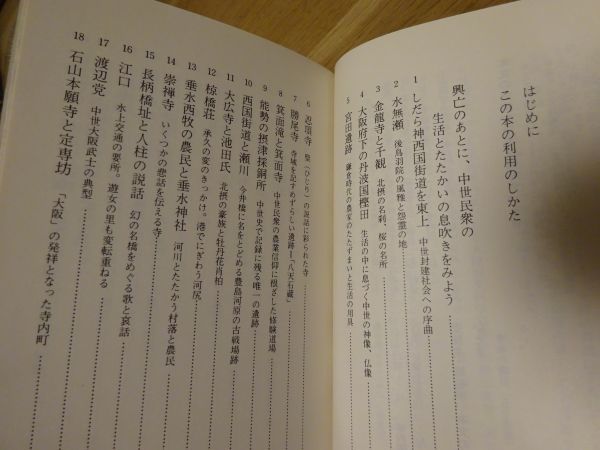 はじめに
この本の利用のしかた
興亡のあとに、中世民衆の
生活とたたかいの息吹きをみよう
1 しだら神西国街道を東上 中世封建社会への序曲
2 水無瀬 後鳥羽院の風雅と怨霊の地
3 金龍寺と千観 北摂の名刹、桜の名所
4 大阪府下の丹波国樫田 生活の中に息づく中世の神像、仏像
5 宮田遺跡 鎌倉時代の農家のたたずまいと生活の用具
6 忍頂寺 聖(ひじり)の説話に彩られた寺
7 勝尾寺 寺域を記すめずらしい遺跡―「八天石蔵」
8 箕面滝と箕面寺 中世民衆の農業信仰に根ざした修験道場
9 能勢の摂津採銅所 中世史で記録に残る唯一の遺跡
10 西国街道と瀬川 今井橋に名をとどめる豊島河原の古戦場跡
11 大広寺と池田氏 北摂の豪族と牡丹花肖柏
12 椋橋荘 承久の変のきっかけ。港でにぎわう河尻
13 垂水西牧の農民と垂水神社 河川とたたかう村落と農民
14 崇禅寺 いくつかの悲話を伝える寺
15 長柄橋址と人柱の説話 幻の名橋をめぐる歌と哀話
16 江口 水上交通の要所。遊女の里も変転重ねる
17 渡辺党 中世大阪武士の典型
18 石山本願寺と定専坊 「大阪」の発祥となった寺内町